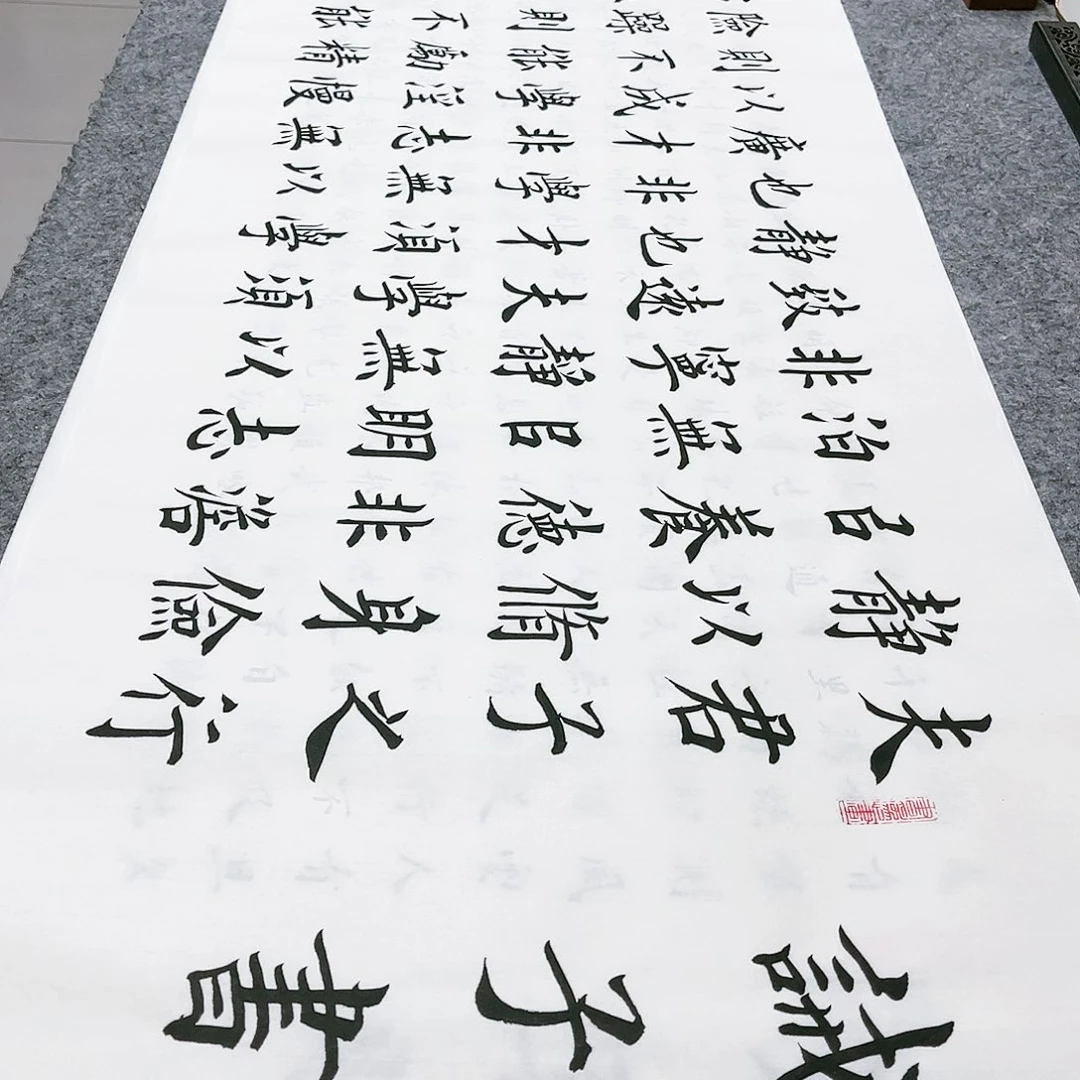 誡子書
夫君子之行
靜以脩身儉
㠯養德非澹
泊無㠯明志
非寧靜無以
致遠夫學須
靜也才須學
也非學無以
廣才非志無
以成學淫慢
則不能勵精
險躁則不能